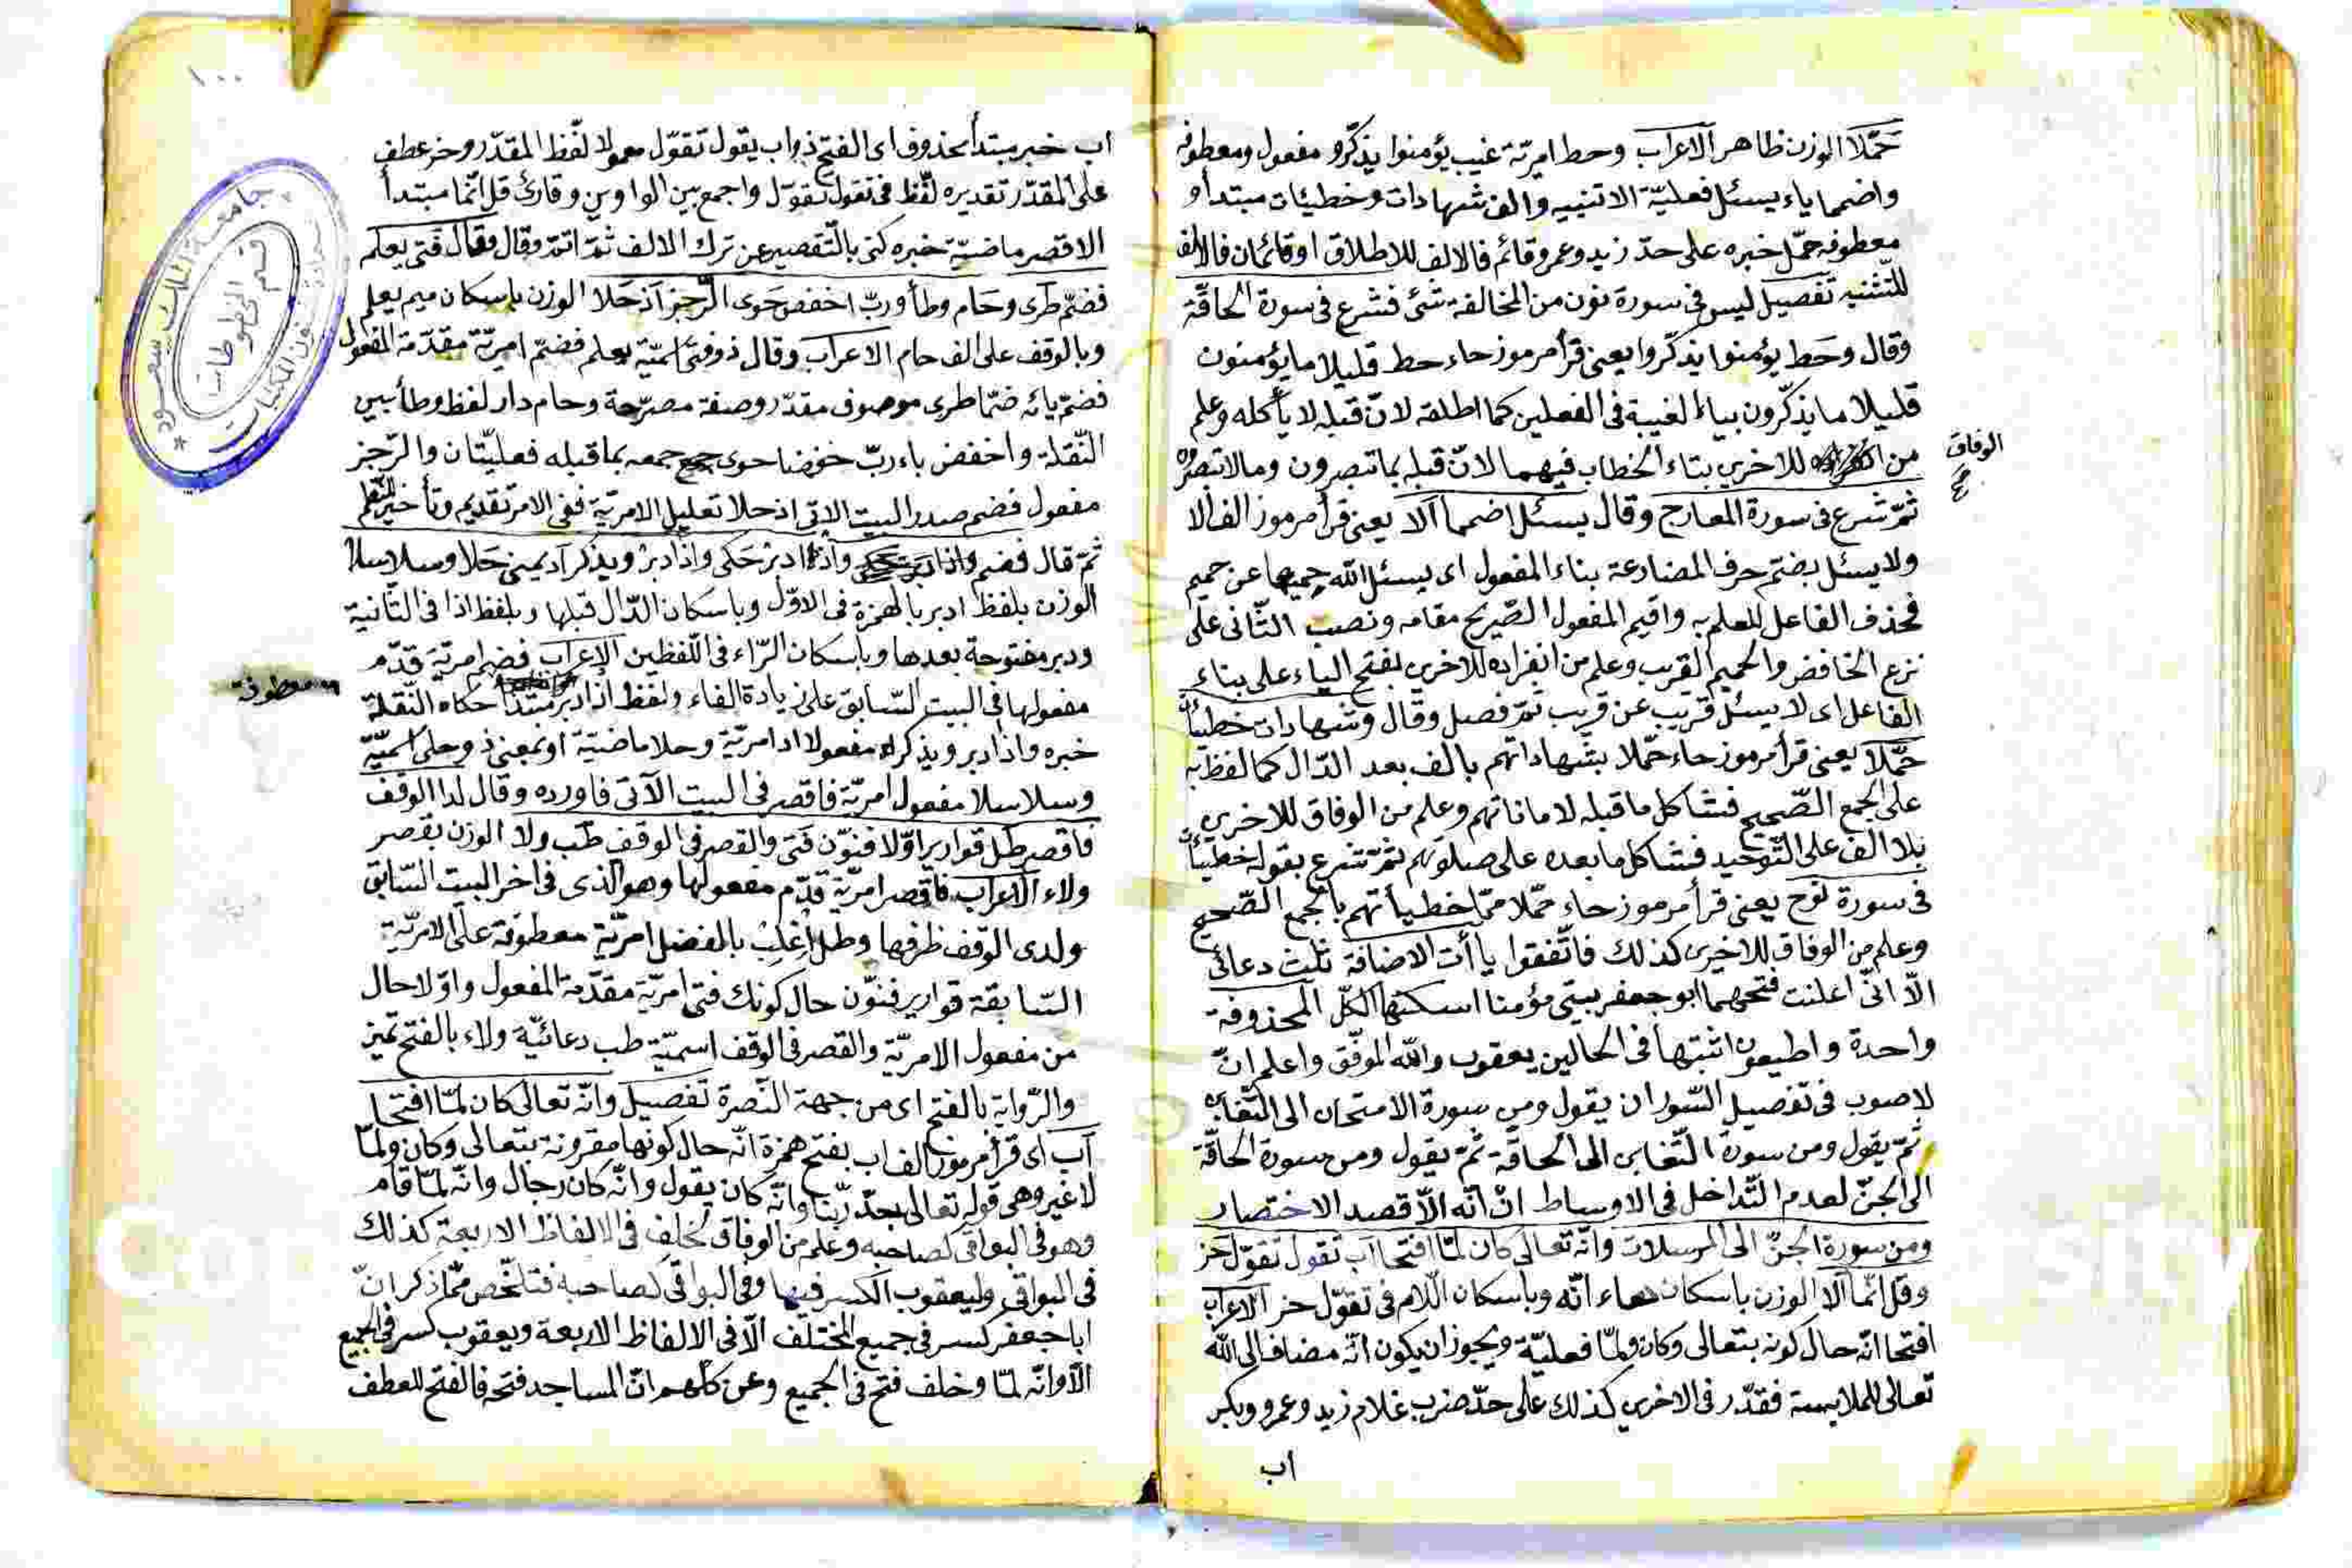 حمّلا الوزن ظاهر الاعراب وحط امريّة غيب يؤمنوا يذكّرو مفعول ومعطوفه
واضمما ياء يسئل فعليّة الاتنيه والف شهادات وخطيئات مبتدأ و
معطوفه حمّل خبره على حدّ زيد وعمرو قائم فالالف للاطلاق او قائمان فالالف
للتّثنيه تفصيل ليس فى سورة نون من المخالفة شئ فشرع فى سورة الحاقّة
وقال وحط يؤمنوا يذكّروا يعنى قرأ مرموز حاء حط قليلا ما يؤمنون
قليلا ما يذكّرون بياء الغيبة فى الفعلين كما اطلقه لانّ قبله لا يأكله وعلم
من الوفاق للاخرين بتاء الخطاب فيهما لانّ قبله بما تبصرون وما لا تبصرون
ثمّ شرع فى سورة المعارج وقال يسئل اضمما آلا يعنى قرأ مرموز الف الا
ولا يسئل بضمّ حرف المضارعة بناء المفعول اى يسئل الله حميما عن حميم
فحذف الفاعل للعلم به واقيم المفعول الصّريح مقامه ونصب الثّانى على
نزع الخافض والحميم القريب وعلم من انفراده للاخرين بفتح الياء على بناء
الفاعل اى لا يسئل قريب عن قريب ثمّ فصل وقال وشهادات خطيئا
حمّلا يعنى قرأ مرموز حاء حمّلا بشهاداتهم بالف بعد الدّال كما لفظ به
على الجمع الصّحيح فشاكل ما قبله لاماناتهم وعلم من الوفاق للاخرين
بلا الف على التّوحيد فشاكل ما بعده على صلوتهم ثمّ شرع بقوله خطيئا
فى سورة نوح يعنى قرأ مرموز حاء حمّلا ممّا خطيأتهم بالجمع الصّحيح
وعلم من الوفاق للاخرين كذلك فاتّفقوا ياأت الاضافة ثلث دعائى
الّا انّى اعلنت فتحهما ابو جعفر بيتى مؤمنا اسكنها الكلّ المحذوفة
واحدة واطيعون اثبتها فى الحالين يعقوب والله الموفّق واعلم انّ
لاصوب فى تفصيل السّور ان يقول ومن سورة الامتحان الى التّغابن
ثمّ يقول ومن سورة التّغابن الى الحاقّة ثمّ يقول ومن سورة الحاقّة
الى الجنّ لعدم التّداخل فى الاوساط انّ انّه الّا قصد الاختصار
ومن سورة الجنّ الى المرسلات وانّه تعالى كان لمّا افتحا اب تقول تقوّل حز
وقل انّما آلا الوزن باسكان هاء انّه وباسكان اللّام فى تقوّل حز الاعراب
افتحا انّه حال كونه بتعالى وكان ولمّا فعليّة ويجوز ان يكون انّه مضاف الى الله
تعالى للملابسة فقدّر فى الاخرين كذلك على حدّ ضرب غلام زيد وعمرو وبكر
اب
الوفاق
صح
١٠٠
اب خبر مبتدأ محذوف اى الفتح ذو اب يقول تقوّل معمولا لفّظ المقدّر وحز عطف
على المقدّر تقديره لفّظ فى تقول تقوّل واجمع بين الواوين وقارئ قل انّما مبتدأ
الا قصر ماضيّة خبره كنى بالتّقصير عن ترك الالف ثمّ اتمّ وقال وقال فتى يعلم
فضمّ طرى وحام وطأ وربّ اخفض حوى الرّجز اذ حلا الوزن باسكان ميم يعلم
وبالوقف على الف حام الاعراب وقال ذو فتى اسميّة يعلم فضمّ امريّة مقدّمة المفعول
فضمّ يائه ضمّا طرى موصوف مقدّر وصفة مصرّحة وحام دار لفظ وطأ بين
النّقلة واخفض باء ربّ خفضا حوى جمعه بما قبله فعليّتان والرّجز
مفعول فضم صدر البيت الاتى اذ حلا تعليل الامريّة ففى الامر تقديم وتأخير للنّظم
ثمّ قال فضم واذ ادبر حكى واذا دبر ويذكر اد يمنى حلا وسلاسلا
الوزن بلفظ ادبر بالهمزة فى الاوّل وباسكان الدّال قبلها وبلفظ اذا فى الثّانية
ودبر مفتوحة بعدها وباسكان الرّاء فى اللّفظين الاعراب فضم امريّة قدّم
مفعولها فى البيت السّابق على زيادة الفاء ولفظ اذ ادبر مبتدأ حكاه النّقلة
خبره واذا دبر ويذكر مفعولا اد امريّة وحلا ماضيّة او بمعنى ذو حلى اسميّة
وسلاسلا مفعول امريّة فاقصر فى البيت الآتى فاورده وقال لدا الوقف
فاقصر طل قوارير اوّلا فنوّن فتى والقصر فى الوقف طب ولا الوزن بقصر
ولاء الاعراب فاقصر امريّة قدّم مفعولها وهو الذى فى اخر البيت السّابق
ولدى الوقف ظرفها وطل اغلب بالفضل امريّة معطوفة على الامريّة
السّابقة قوارير فنوّن حال كونك فتى امريّة مقدّمة المفعول واوّلا حال
من مفعول الامريّة والقصر فى الوقف اسميّة طب دعائيّة ولاء بالفتح تميز
والرّواية بالفتح اى من جهة النّصرة تفصيل وانّه تعالى كان لمّا افتحا
آب اى قرأ مرموز الف اب بفتح همزة انّه حال كونها مقرونة بتعالى وكان ولمّا
لا غير وهى قوله تعالى جدّ ربّنا وانّه كان يقول وانّه كان رجال وانّه لمّا قام
وهو فى البواقى كصاحبه وعلم من الوفاق لخلف فى الالفاظ الاربعة كذلك
فى البواقى وليعقوب الكسر فيها وفى البواقى كصاحبه فتلخّص ممّا ذكر انّ
ابا جعفر كسر فى جميع المختلف الّا فى الالفاظ الاربعة ويعقوب كسر فى الجميع
الّا وانّه لمّا وخلف فتح فى الجميع وعن كلّهم انّ المساجد فتحه فالفتح للعطف
معطوفة
جامعة الملك سعود
قسم المخطوطات